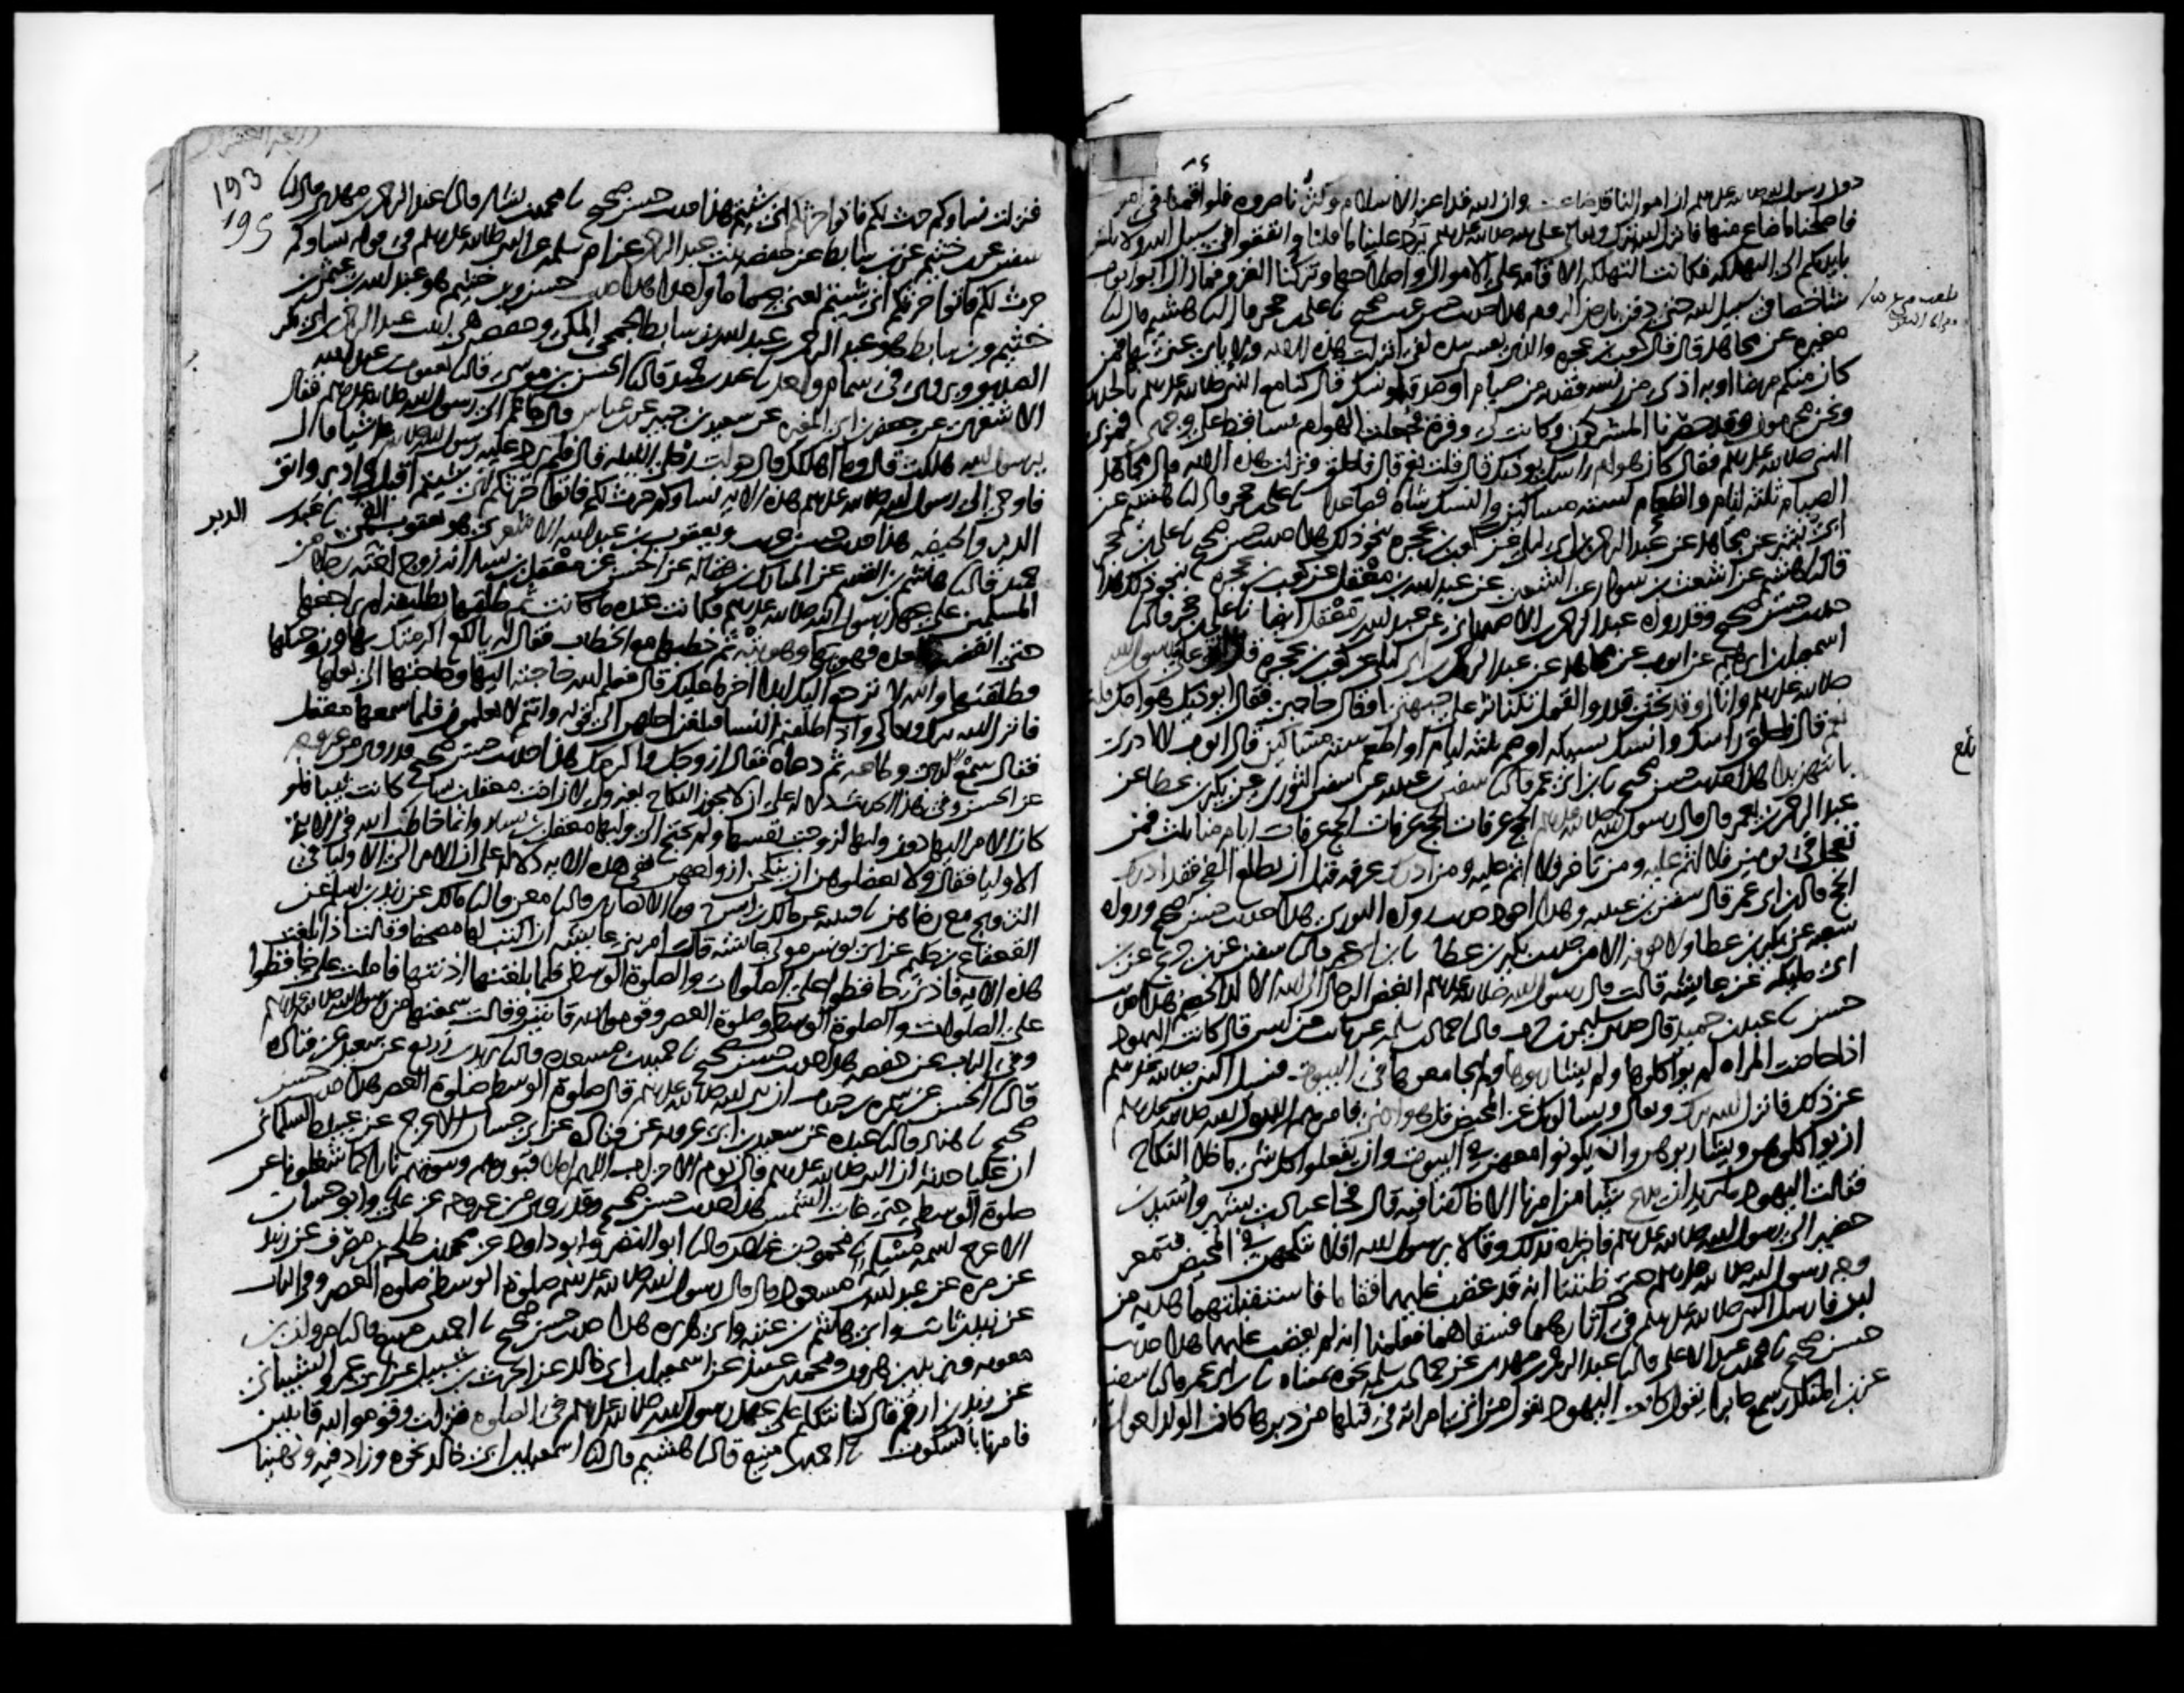 دون رسول الله صلى الله عليه وسلم ان اموالنا قد ضاعت وان الله قد اعز الاسلام وكثر ناصروه فلو اقمنا في امو
فاصلحنا ما ضاع منها فانزل الله تبارك وتعالى على نبيه صلى الله عليه وسلم يرد علينا ما قلنا وانفقوا في سبيل الله ولا تلقوا
بايديكم الى التهلكه فكانت التهلكه الاقامه على الاموال واصلاحها وتركنا الغزو فما زال ابو ايوب
شاخصا في سبيل الله حتى دفن بارض الروم هذا حديث حسن غريب صحيح نا علي بن حجر قال نا هشيم قال نا
مغيره عن مجاهد قال قال كعب بن عجره والذي نفسي بيده لفي انزلت هذه الايه واياي عنى بها فمن
كان منكم مريضا او به اذى من راسه ففديه من صيام او صدقه او نسك قال كنا مع النبي صلى الله عليه وسلم بالحديبيه
ونحن محرمون وقد حصرنا المشركون وكانت لي وفره فجعلت الهوام تساقط على وجهي فمر بي
النبي صلى الله عليه وسلم فقال كان هوام راسك تؤذيك قال قلت نعم قال فاحلق ونزلت هذه الايه قال مجاهد
الصيام ثلثه ايام والطعام لسته مساكين والنسك شاه فصاعدا نا علي بن حجر قال نا هشيم عن
ابي بشر عن مجاهد عن عبد الرحمن بن ابي ليلى عن كعب بن عجره نحو ذلك هذا حديث حسن صحيح نا علي بن حجر
قال نا هشيم عن اشعث بن سوار عن الشعبي عن عبد الله بن معقل عن كعب بن عجره بنحو ذلك هذا
حديث حسن صحيح وقد رواه عبد الرحمن الاصبهاني عن عبد الله بن معقل ايضا نا علي بن حجر قال نا
اسمعيل بن ابرهيم عن ايوب عن مجاهد عن عبد الرحمن بن ابي ليلى عن كعب بن عجره قال اتى علي رسول الله
صلى الله عليه وسلم وانا اوقد تحت قدر والقمل تتناثر على جبهتي او قال حاجبي فقال ايوذيك هوامك قلت نعم
قال فاحلق راسك وانسك نسيكه او صم ثلثه ايام او اطعم سته مساكين قال ايوب لا ادري
بايتهن بدا هذا حديث حسن صحيح نا ابن ابي عمر قال نا سفين بن عيينه عن سفين الثوري عن بكير بن عطا عن
عبد الرحمن بن يعمر قال قال رسول الله صلى الله عليه وسلم الحج عرفات الحج عرفات الحج عرفات ايام منا ثلث فمن
تعجل في يومين فلا اثم عليه ومن تاخر فلا اثم عليه ومن ادرك عرفه قبل ان يطلع الفجر فقد ادرك
الحج قال ابن ابي عمر قال سفين بن عيينه وهذا اجود حديث رواه الثوري هذا حديث حسن صحيح ورواه
شعبه عن بكير بن عطا ولا نعرفه الا من حديث بكير بن عطا نا ابن ابي عمر قال نا سفين عن ابن جريج عن ابن
ابي مليكه عن عايشه قالت قال رسول الله صلى الله عليه وسلم ابغض الرجال الى الله الالد الخصم هذا حديث
حسن نا عبد بن حميد قال حدثني سليمن بن حرب قال نا حماد بن سلمه عن ثابت عن انس قال كانت اليهود
اذا حاضت المراه لم يواكلوها ولم يشاربوها ولم يجامعوها في البيوت فسئل النبي صلى الله عليه وسلم
عن ذلك فانزل الله تبارك وتعالى ويسالونك عن المحيض قل هو اذى فامرهم رسول الله صلى الله عليه وسلم
ان يواكلوهن ويشاربوهن وان يكونوا معهن في البيوت وان يفعلوا كل شي ما خلا النكاح
فقالت اليهود ما يريد ان يدع شيا من امرنا الا خالفنا فيه قال فجا عباد بن بشر واسيد بن
حضير الى رسول الله صلى الله عليه وسلم فاخبراه بذلك وقالا يرسول الله افلا ننكحهن في المحيض فتمعر
وجه رسول الله صلى الله عليه وسلم حتى ظننا انه قد غضب عليهما فقاما فاستقبلتهما هديه من
لبن فارسل النبي صلى الله عليه وسلم في اثارهما فسقاهما فعلمنا انه لم يغضب عليهما هذا حديث
حسن صحيح نا محمد بن عبد الاعلى قال نا عبد الرحمن بن مهدي عن حماد بن سلمه نحوه بمعناه نا ابن ابي عمر قال نا سفين
عن ابن المنكدر سمع جابرا يقول كانت اليهود تقول من اتى امراته في قبلها من دبرها كان الولد احول
بلغ
193
195
فنزلت نساوكم حرث لكم فاتوا حرثكم انى شيتم هذا حديث حسن صحيح نا محمد بن بشار قال نا عبد الرحمن بن مهدي قال نا
سفين عن ابن خثيم عن ابن سابط عن حفصه بنت عبد الرحمن عن ام سلمه عن النبي صلى الله عليه وسلم في قوله نساوكم
حرث لكم فاتوا حرثكم انى شيتم يعني صماما واحدا هذا حديث حسن وابن خثيم هو عبد الله بن عثمن بن
خثيم وابن سابط هو عبد الرحمن بن عبد الله بن سابط الجمحي المكي وحفصه هي بنت عبد الرحمن بن ابي بكر
الصديق ويروى في سمام واحد نا عبد بن حميد قال نا الحسن بن موسى قال نا يعقوب بن عبد الله
الاشعري عن جعفر بن ابي المغيره عن سعيد بن جبير عن ابن عباس قال جا عمر الى رسول الله صلى الله عليه وسلم فقال
يرسول الله هلكت قال وما اهلكك قال حولت رحلي الليله قال فلم يرد عليه رسول الله صلى الله عليه وسلم شيا قال
فاوحي الى رسول الله صلى الله عليه وسلم هذه الايه نساوكم حرث لكم فاتوا حرثكم انى شيتم اقبل وادبر واتق
الدبر
الدبر والحيضه هذا حديث حسن غريب ويعقوب بن عبد الله الاشعري هو يعقوب القمي نا عبد بن
حميد قال نا هاشم بن القسم عن المبارك بن فضاله عن الحسن عن معقل بن يسار انه زوج اخته رجلا من
المسلمين على عهد رسول الله صلى الله عليه وسلم فكانت عنده ما كانت ثم طلقها تطليقه لم يراجعها
حتى انقضت العده فهويها وهويته ثم خطبها مع الخطاب فقال له يا لكع اكرمتك بها وزوجتكها
فطلقتها والله لا ترجع اليك ابدا اخر ما عليك قال فعلم الله حاجته اليها وحاجتها الى بعلها
فانزل الله تبارك وتعالى واذا طلقتم النسا فبلغن اجلهن الى قوله وانتم لا تعلمون فلما سمعها معقل
فقال سمع لربي وطاعه ثم دعاه فقال ازوجك واكرمك هذا حديث حسن صحيح وقد روي من غير وجه
عن الحسن وفي هذا الحديث دلاله على ان لا يجوز النكاح بغير ولي لان اخت معقل بن يسار كانت ثيبا فلو
كان الامر اليها دون وليها لزوجت نفسها ولم تحتج الى وليها معقل بن يسار وانما خاطب الله في الايه
الاوليا فقال ولا تعضلوهن ان ينكحن ازواجهن ففي هذه الايه دلاله على ان الامر الى الاوليا في
التزويج مع رضاهن نا قتيبه عن مالك بن انس ح ونا الانصاري قال نا معن قال نا مالك عن زيد بن اسلم عن
القعقاع بن حكيم عن ابي يونس مولى عايشه قال امرتني عايشه ان اكتب لها مصحفا وقالت اذا بلغت
هذه الايه فاذني حافظوا على الصلوات والصلوة الوسطى فلما بلغتها اذنتها فاملت علي حافظوا
على الصلوات والصلوة الوسطى وصلوة العصر وقوموا لله قانتين وقالت سمعتها من رسول الله صلى الله عليه وسلم
وفي الباب عن حفصه هذا حديث حسن صحيح نا حميد بن مسعده قال نا يزيد بن زريع عن سعيد عن قتاده
قال نا الحسن عن سمره بن جندب ان نبي الله صلى الله عليه وسلم قال صلوة الوسطى صلوة العصر هذا حديث حسن
صحيح نا هناد قال نا عبده عن سعيد بن ابي عروبه عن قتاده عن ابي حسان الاعرج عن عبيده السلماني
ان عليا حدثه ان النبي صلى الله عليه وسلم قال يوم الاحزاب اللهم املا قبورهم وبيوتهم نارا كما شغلونا عن
صلوة الوسطى حتى غابت الشمس هذا حديث حسن صحيح وقد روي من غير وجه عن علي وابو حسان
الاعرج اسمه مسلم نا محمود بن غيلان قال نا ابو النضر وابو داود عن محمد بن طلحه بن مصرف عن زبيد
عن مره عن عبد الله بن مسعود قال قال رسول الله صلى الله عليه وسلم صلوة الوسطى صلوة العصر وفي الباب
عن زيد بن ثابت وابي هاشم بن عتبه وابي هريره هذا حديث حسن صحيح نا احمد بن منيع قال نا مروان بن
معويه ويزيد بن هرون ومحمد بن عبيد عن اسمعيل بن ابي خالد عن الحرث بن شبيل عن ابي عمرو الشيباني
عن زيد بن ارقم قال كنا نتكلم على عهد رسول الله صلى الله عليه وسلم في الصلوة فنزلت وقوموا لله قانتين
فامرنا بالسكوت نا احمد بن منيع قال نا هشيم قال نا اسمعيل بن ابي خالد نحوه وزاد فيه ونهينا